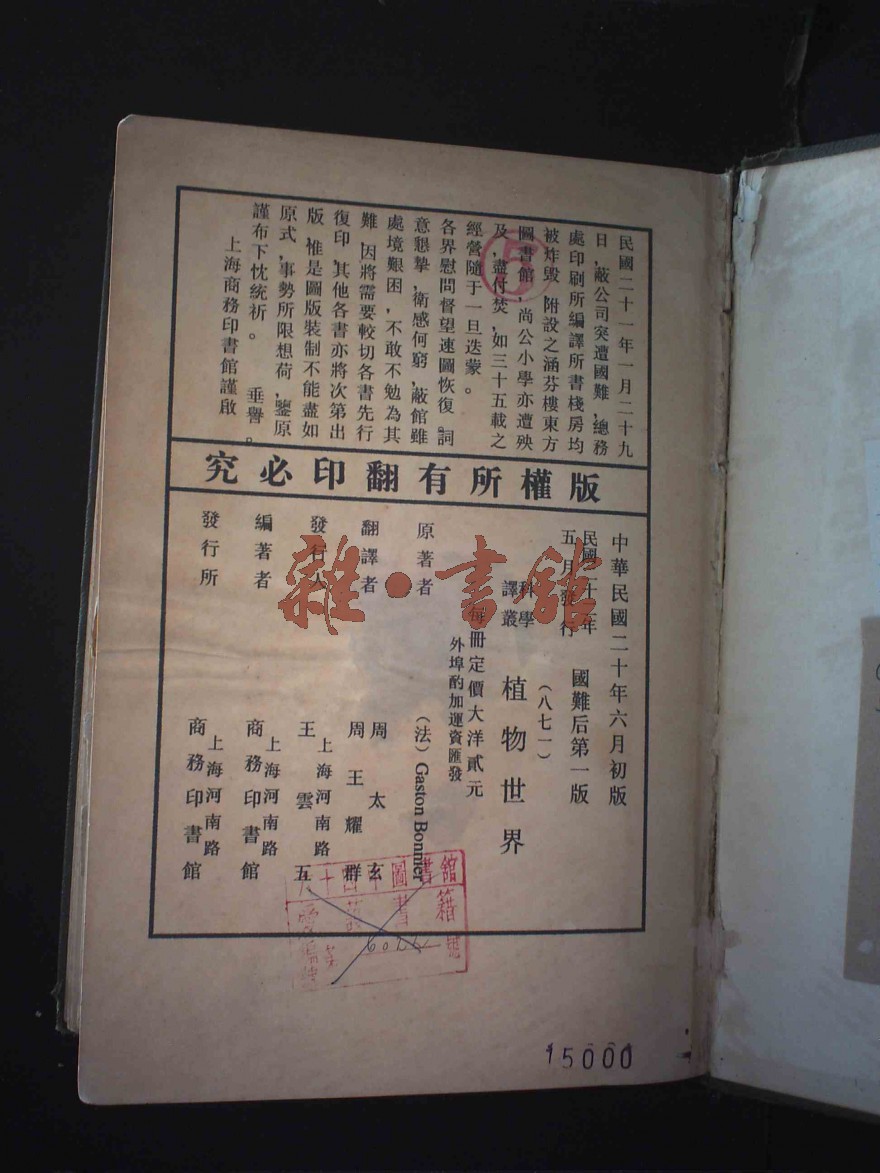 民國二十一年一月二十九
日,蔽公司突遭國難,總務
處印刷所編譯所書棧房均
被炸毀,附設之涵芬樓東方
圖書館,尚公小學亦遭殃
及,盡付焚,如三十五載之
經營隨于一旦迭蒙。
各界慰問督望速圖恢復。詞
意懇摯,衛感何窮,蔽館雖
處境艱困,不敢不勉為其
難,因將需要較切各書先行
復印,其他各書亦將次第出
版,惟是圖版裝制不能盡如
原式,事勢所限想荷,鑒原
謹布下忱統祈。 垂詧。
上海商務印書館謹啟
版權所有翻印必究
中華民國二十年六月初版
民國二十二年
五月發行
國難后第一版
(八七一)
科學
譯叢
植物世界
每冊定價大洋貳元
外埠酌加運資匯發
原著者
(法)Gaston Bonnier
翻譯者
周太玄
周王耀群
發行人
上海河南路
王雲五
編著者
上海河南路
商務印書館
發行所
上海河南路
商務印書館
雜·書館
5
15000